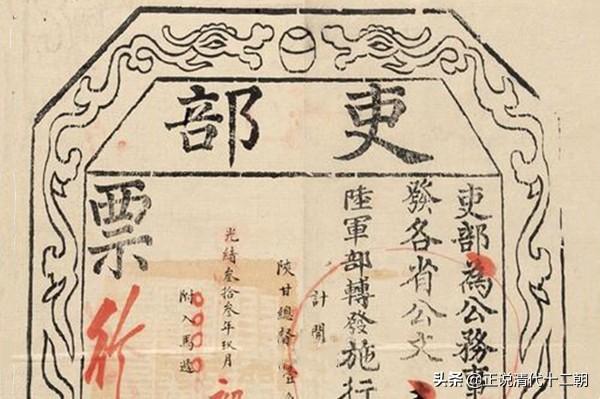 吏部
吏部為公務事
發各省公文
陸軍部轉發施行
計開
陝甘總督壹
光緒叁拾叁年玖月
附入馬遞
票
行
头条 @正说清代十二朝